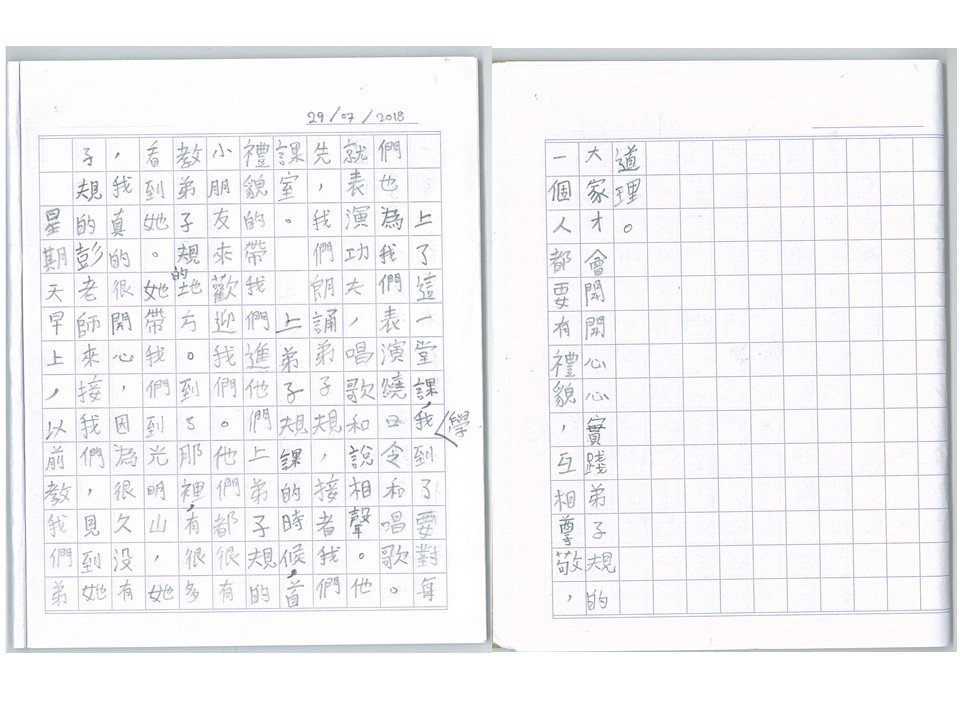 29/07/2018
星期天早上，以前教我們弟
子規的彭老師來接我們，見到她
，我真的很開心，因為很久没有
看到她。她帶我們到光明山，她
教弟子規的地方。到了那裡，有很多
小朋友來歡迎我們。他們都很有
禮貌的帶我們進他們上弟子規的
課室。
上弟子規課的時候，首
先，我們朗誦弟子規，接者我們
就表演功夫，唱歌和說相聲。他
們也為我們表演繞口令和唱歌。
上了這一堂課，我學到了要對每
一個人都要有禮貌，互相尊敬，
大家才會開開心心實踐弟子規的
道理。